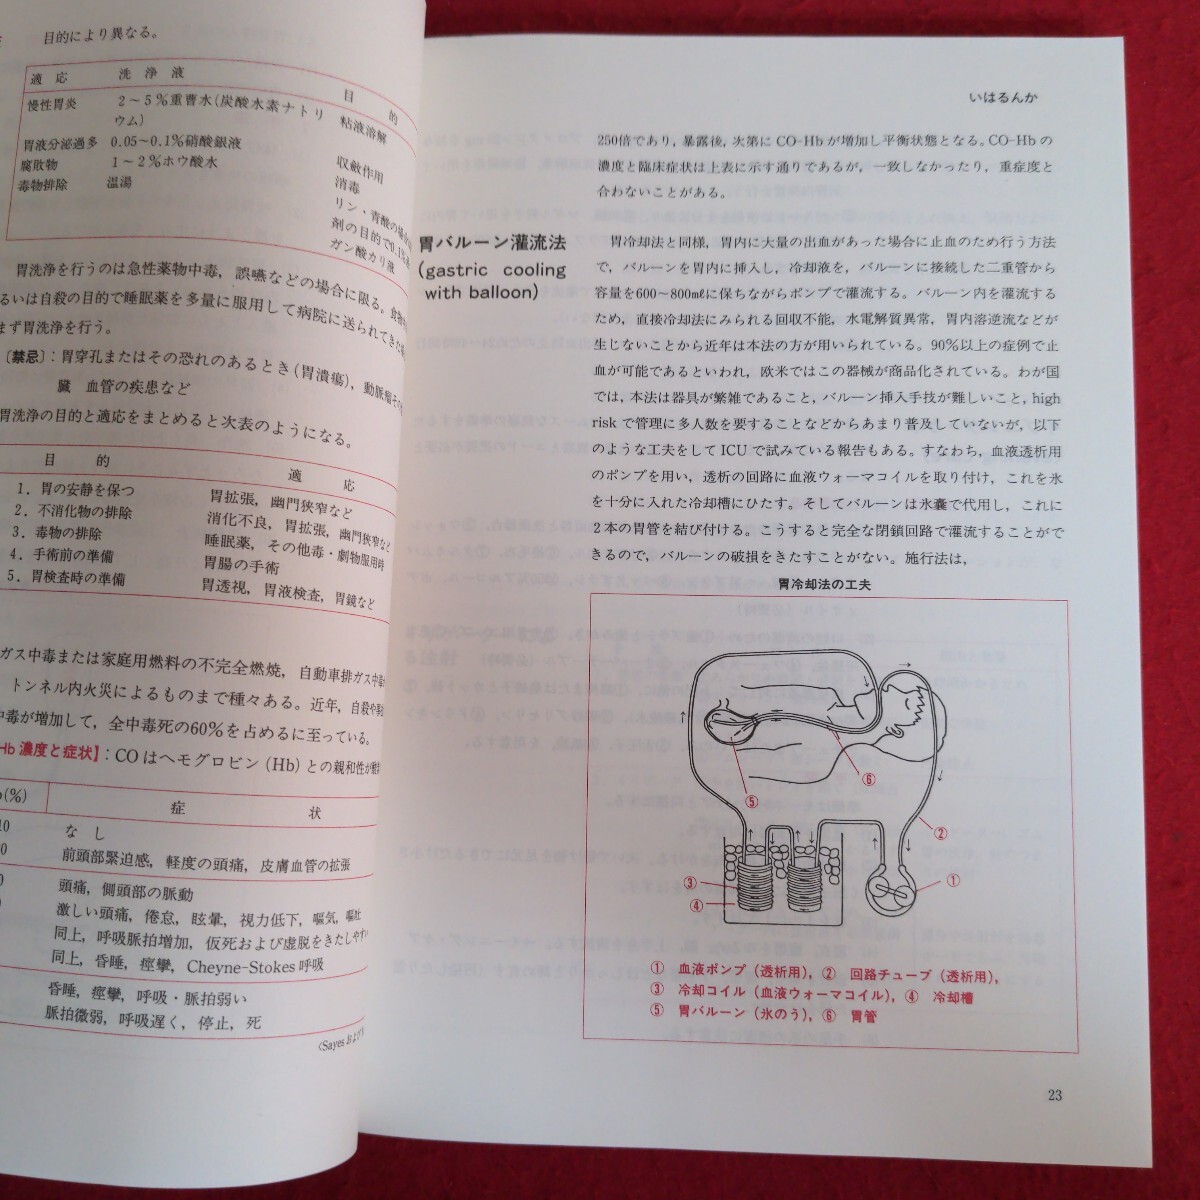 目的により異なる。
適 応 洗 浄 液 目 的
慢性胃炎 2～5％重曹水(炭酸水素ナトリウム) 粘液溶解
胃液分泌過多 0.05～0.1％硝酸銀液 収斂作用
腐敗物 1～2％ホウ酸水 消毒
毒物排除 温湯 リン・青酸の場合
剤の目的で0.1％
ガン酸カリ液
胃洗浄を行うのは急性薬物中毒，誤嚥などの場合に限る。食物
るいは自殺の目的で睡眠薬を多量に服用して病院に送られてきた
まず胃洗浄を行う。
〔禁忌〕：胃穿孔またはその恐れのあるとき(胃潰瘍)，動脈瘤
臓 血管の疾患など
胃洗浄の目的と適応をまとめると次表のようになる。
目 的 適 応
1．胃の安静を保つ 胃拡張，幽門狭窄など
2．不消化物の排除 消化不良，胃拡張，幽門狭窄など
3．毒物の排除 睡眠薬，その他毒・劇物服用時
4．手術前の準備 胃腸の手術
5．胃検査時の準備 胃透視，胃液検査，胃鏡など
ガス中毒または家庭用燃料の不完全燃焼，自動車排ガス中毒
トンネル内火災によるものまで種々ある。近年，自殺や
中毒が増加して，全中毒死の60％を占めるに至っている。
Hb 濃度と症状】：COはヘモグロビン（Hb）との親和性が
(%) 症 状
10 な し
0 前頭部緊迫感，軽度の頭痛，皮膚血管の拡張
0 頭痛，側頭部の脈動
激しい頭痛，倦怠，眩暈，視力低下，嘔気，嘔吐
同上，呼吸脈拍増加，仮死および虚脱をきたしやすい
同上，昏睡，痙攣，Cheyne-Stokes 呼吸
昏睡，痙攣，呼吸・脈拍弱い
脈拍微弱，呼吸遅く，停止，死
(Sayes および
いはるんか
250倍であり，暴露後，次第に CO-Hb が増加し平衡状態となる。CO-Hb の
濃度と臨床症状は上表に示す通りであるが，一致しなかったり，重症度と
合わないことがある。
胃バルーン灌流法
(gastric cooling
with balloon)
胃冷却法と同様，胃内に大量の出血があった場合に止血のため行う方法
で，バルーンを胃内に挿入し，冷却液を，バルーンに接続した二重管から
容量を600～800mlに保ちながらポンプで灌流する。バルーン内を灌流する
ため，直接冷却法にみられる回収不能，水電解質異常，胃内溶逆流などが
生じないことから近年は本法の方が用いられている。90％以上の症例で止
血が可能であるといわれ，欧米ではこの器械が商品化されている。わが国
では，本法は器具が繁雑であること，バルーン挿入手技が難しいこと，high
risk で管理に多人数を要することなどからあまり普及していないが，以下
のような工夫をして ICU で試みている報告もある。すなわち，血液透析用
のポンプを用い，透析の回路に血液ウォーマコイルを取り付け，これを氷
を十分に入れた冷却槽にひたす。そしてバルーンは氷嚢で代用し，これに
2本の胃管を結び付ける。こうすると完全な閉鎖回路で灌流することがで
きるので，バルーンの破損をきたすことがない。施行法は，
胃冷却法の工夫
⑤
⑥
②
①
③
④
① 血液ポンプ（透析用），② 回路チューブ（透析用），
③ 冷却コイル（血液ウォーマコイル），④ 冷却槽
⑤ 胃バルーン（氷のう），⑥ 胃管
23